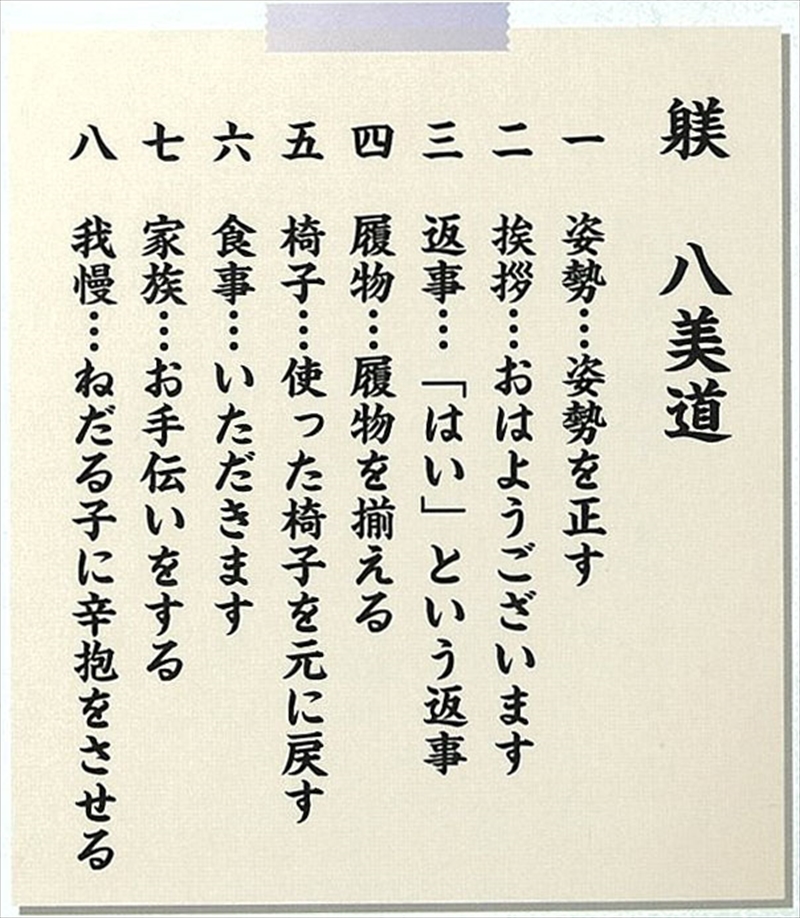 躾　八美道
一　姿勢…姿勢を正す
二　挨拶…おはようございます
三　返事…「はい」という返事
四　履物…履物を揃える
五　椅子…使った椅子を元に戻す
六　食事…いただきます
七　家族…お手伝いをする
八　我慢…ねだる子に辛抱をさせる